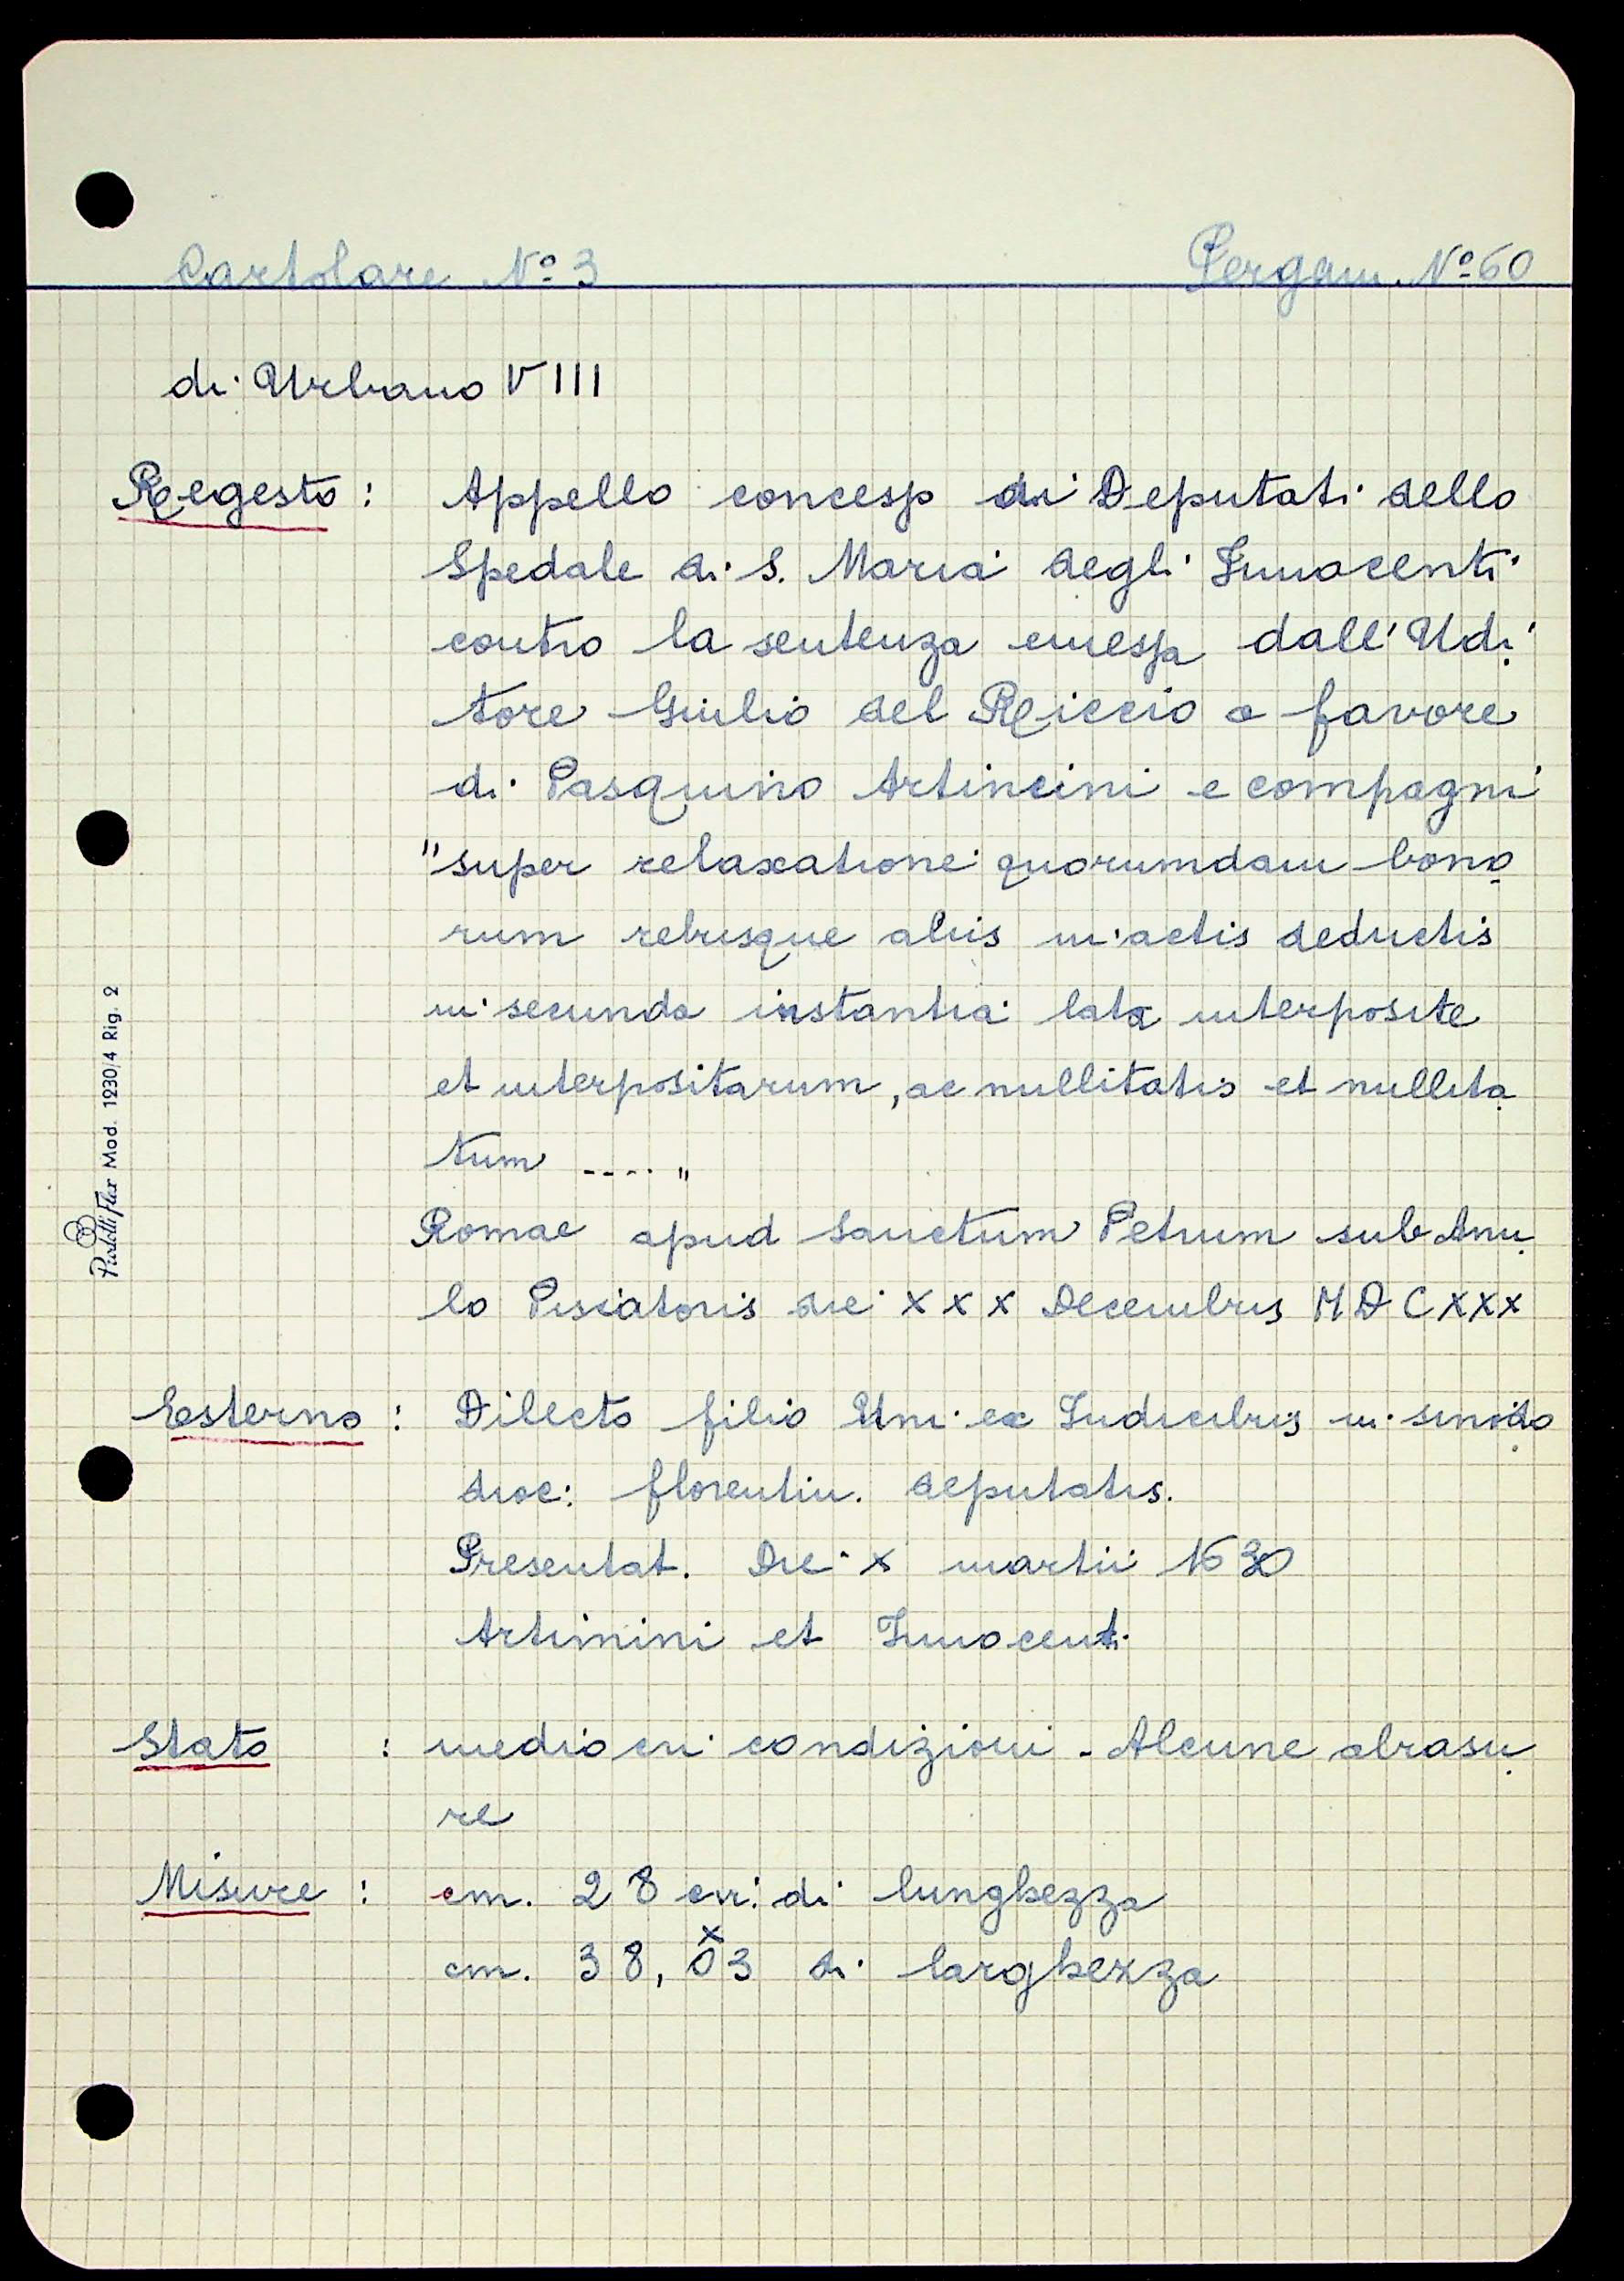 Cartolare N° 3 Pergam. N° 60
di Urbano VIII
Regesto: Appello concesso ai Deputati dello
Spedale di S. Maria degli Innocenti
contro la sentenza emessa dall'Udi
tore Giulio del Riccio a favore
di Pasquino Artincini e compagni
"super relaxatione quorumdam bono
rum rebusque aliis in actis deductis
in secunda instantia lata interposite
et interpositarum, ac nullitatis et nullita
tum ...."
Romae apud Sanctum Petrum sub Anu
lo Pisciatoris die XXX Decembris MDCXXX
Esterno: Dilecto filio Uni ex Iudicibus in sinodo
dioc: florentin. deputatis.
Presentat. Die X martii 1630
Artimini et Innocenti
Stato: mediocri condizioni - Alcune abrasu
re
Misure: cm. 28 cri di lunghezza
cm. 38,03 di larghezza
x
Pratelli Flex Mod. 1230/4 Rig. 2